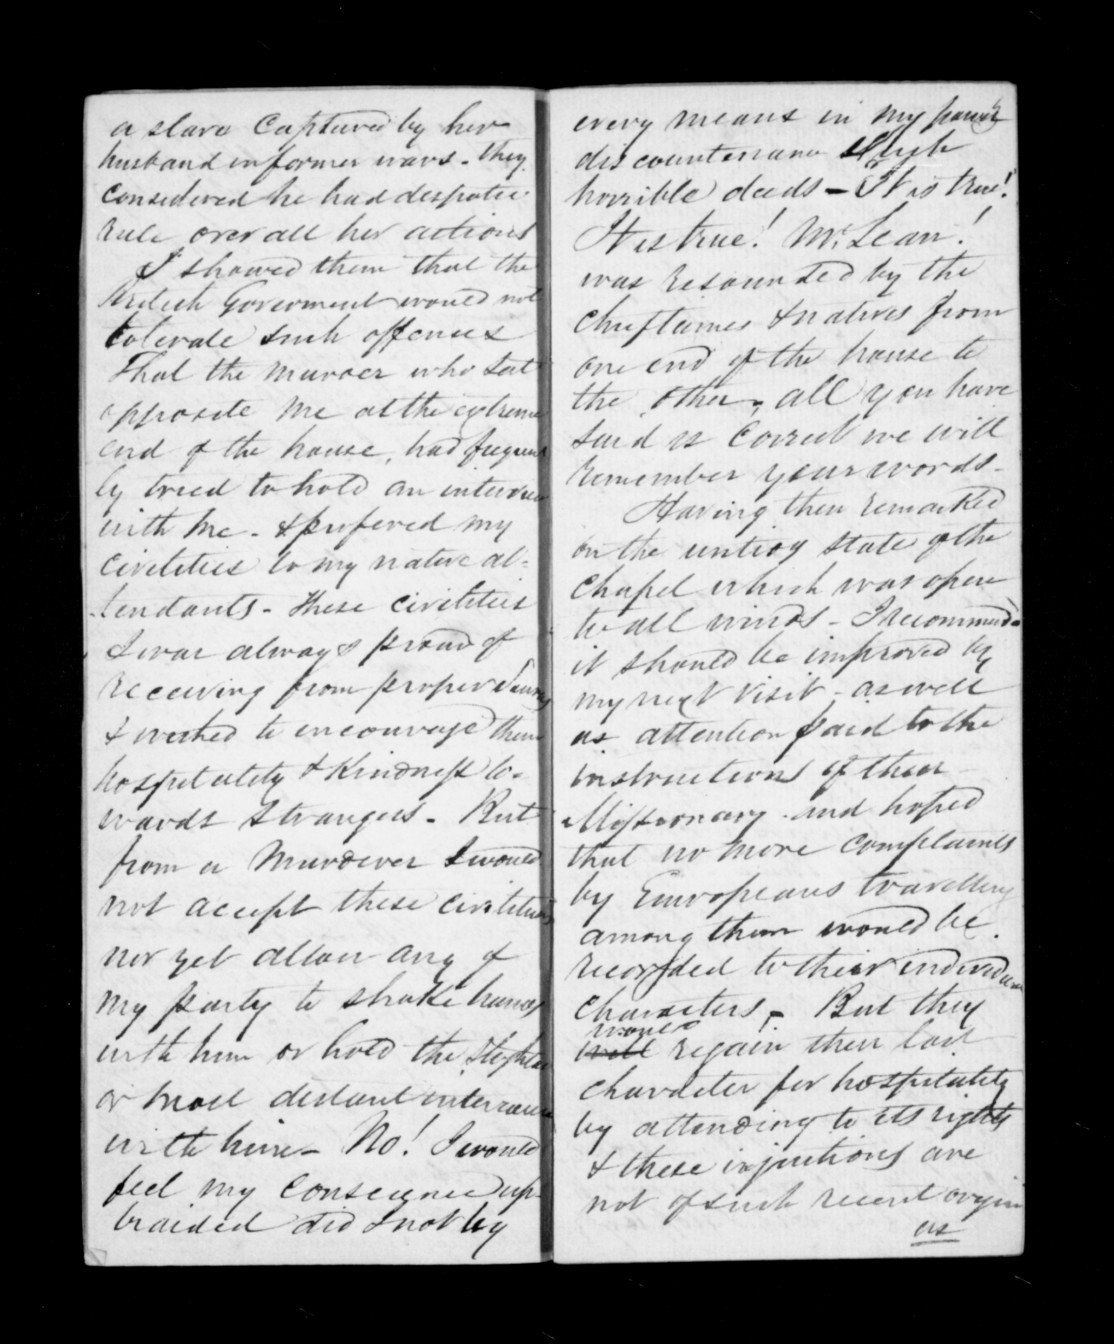 a slave Captured by her
husband in former wars - they
Considered he had despotic
rule over all her actions
I showed them that the
British Goverment would not
tolerate such offences
That the murder who sat
opposite me at the extreme
end of the house, had frequent
ly tried to hold an interview
with me - & prefered my
civilities to my native at-
tendants - These civilities
I was always proud of
receiving from proper
& wished to encourage them
hospitality & Kindness to-
wards Strangers - But
from a Murderer I would
not accept these civilities
nor yet allow any of
my party to shake hands
with him or hold the Slightest
or most distant intercourse
with him - No! I would
feel my Conscience up-
braided did I not by
every means in my power
discountenance Such
horrible deeds - It is true!
It is true! Mr. Lean!
was resounded by the
Chieftaines & natives from
one end of the house to
the other, all you have
said is Correct we will
remember your words -
Having then remarked
on the untidy state of the
Chapel which was open
to all winds - I recommend
it should be improved by
my next visit - as well
as attention paid to the
instructions of their
Missionary - and hoped
that no more complaints
by Europeans travelling
among them would be
recorded to their individual
Characters, - But they
would
will regain their lost
Character for hospitality
by attending to its rights
& these injuctions are
not of such recent origin
as